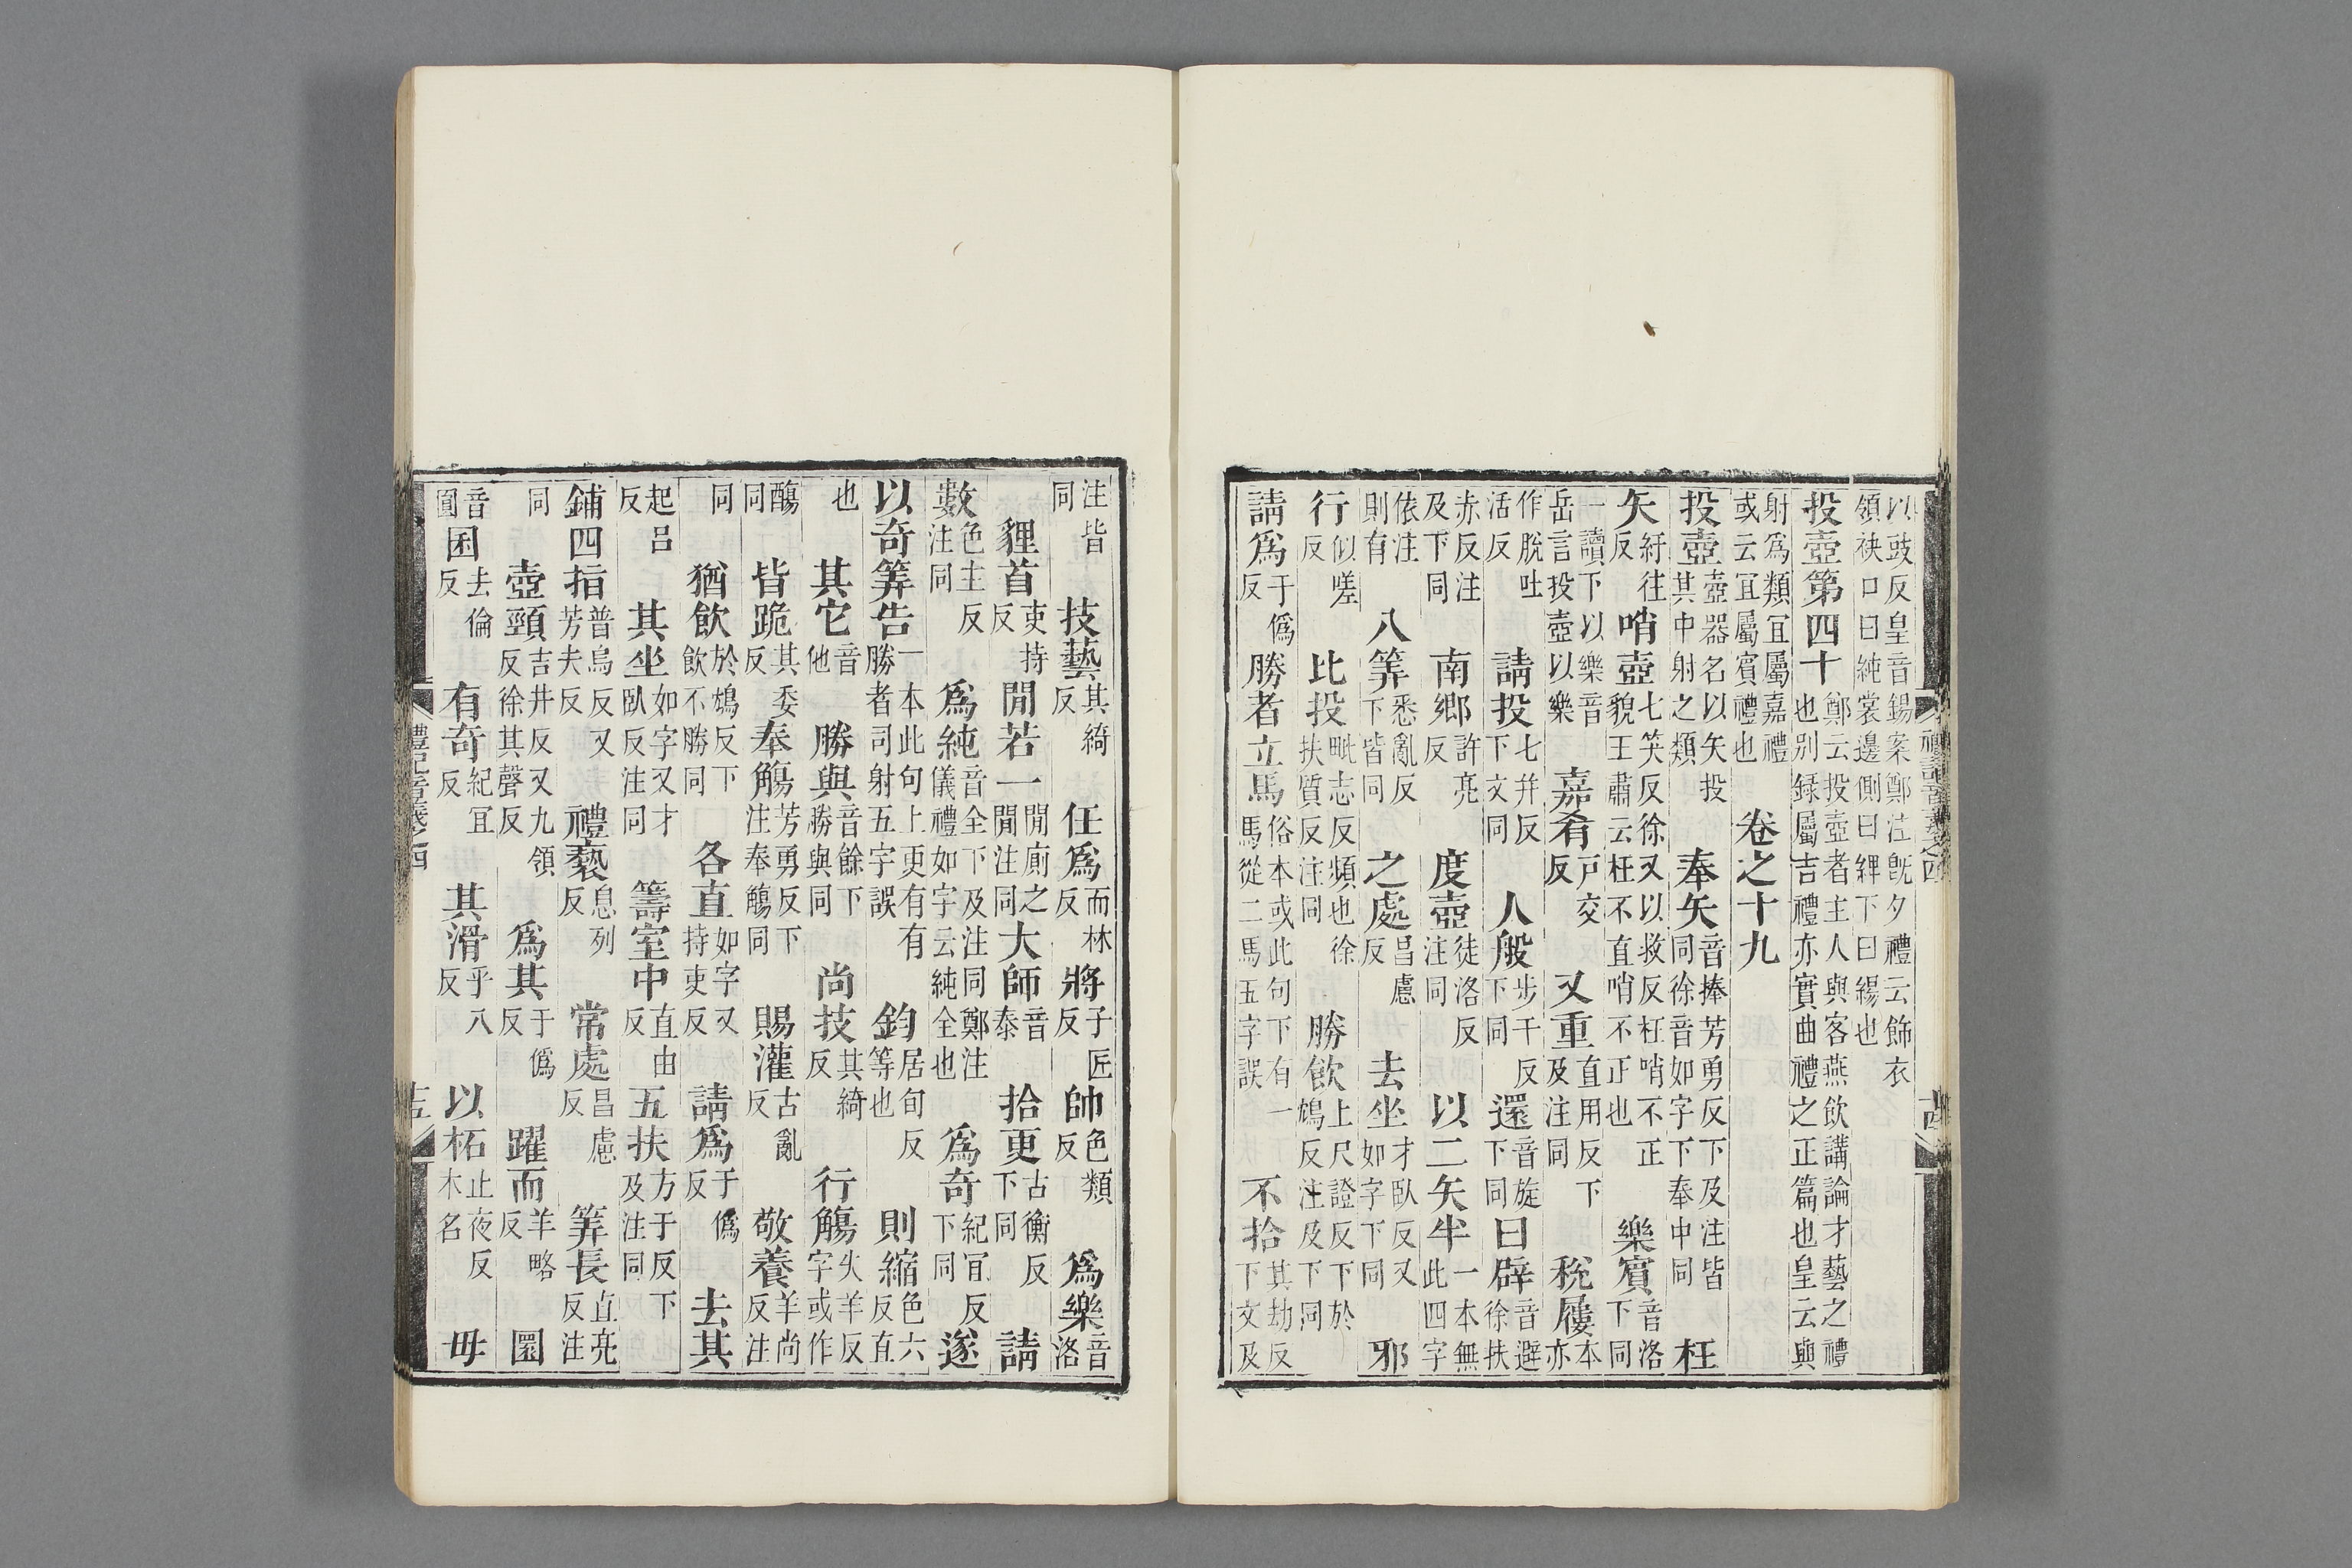 以豉反皇音錫案鄭注既夕禮云飾衣領袂口曰純裳邊側曰綼下曰緆也
投壺第四十鄭云投壺者主人與客燕飲講論才藝之禮也別録屬吉禮亦實曲禮之正篇也皇云與
射爲類冝屬嘉禮或云冝屬賓禮也 卷之十九
投壺壺器名以矢投其中射之類 奉矢音捧芳勇反下及注皆同徐音如字下奉中同 枉
矢紆往反 哨壺七笑反徐又以救反枉哨不正貌王肅云枉不直哨不正也 樂賓音洛下同
一讀下以樂音岳言投壺以樂 嘉肴戶交反 又重直用反下及注同 稅屨本亦
作脫吐活反 請投七井反下文同 人般步干反下同 還音旋下同 曰辟音避徐扶
赤反注及下同 南鄉許亮反 度壺徒洛反注同 以二矢半一本無此四字
依注則有 八筭悉亂反下皆同 之處昌慮反 去坐才臥反又如字下同 邪
行似嗟反 比投毗志反頻也徐扶質反注同 勝飲上尺證反下於鴆反注及下同
請爲于僞反 勝者立馬俗本或此句下有一馬從二馬五字誤 不拾其劫反下文及
禮記音義之四
注皆同 技藝其綺反 任爲而林反 將子匠反 帥色類反 爲樂音洛
貍首吏持反 閒若一閒廁之閒注同 大師音泰 拾更古衡反下同 請
數色主反注同 爲純音全下及注同鄭注儀禮如字云純全也 爲奇紀冝反下同 遂
以奇筭告一本此句上更有有勝者司射五字誤 鈞居旬反等也 則縮色六反直
也 其它音他 勝與音餘下勝與同 尚技其綺反 行觴失羊反字或作
同 皆跪其委反 奉觴芳勇反下注奉觴同 賜灌古亂反 敬養羊尚反注
同 猶飲於鴆反下飲不勝同 各直如字又持吏反 請爲于僞反 去其
起呂反 其坐如字又才臥反注同 籌室中直由反 五扶方于反下及注同
鋪四指普烏反又芳夫反 禮褻息列反 常處昌慮反 筭長直亮反注
同 壺頸吉井反又九領反徐其聲反 爲其于僞反 躍而羊略反 圜
音圓 囷去倫反 有奇紀冝反 其滑乎八反 以柘止夜反木名 毋
禮記音義之四